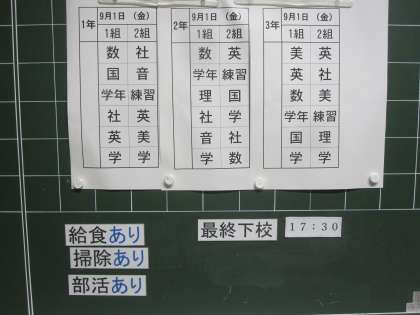 1年 9月1日 (金)
1組 2組
数 社
国 音
学年 練習
社 英
英 美
学 学
2年 9月1日 (金)
1組 2組
数 英
学年 練習
理 国
社 学
音 社
学 数
3年 9月1日 (金)
1組 2組
美 英
英 社
数 美
学年 練習
国 理
学 学
給食あり
掃除あり
部活あり
最終下校 17:30